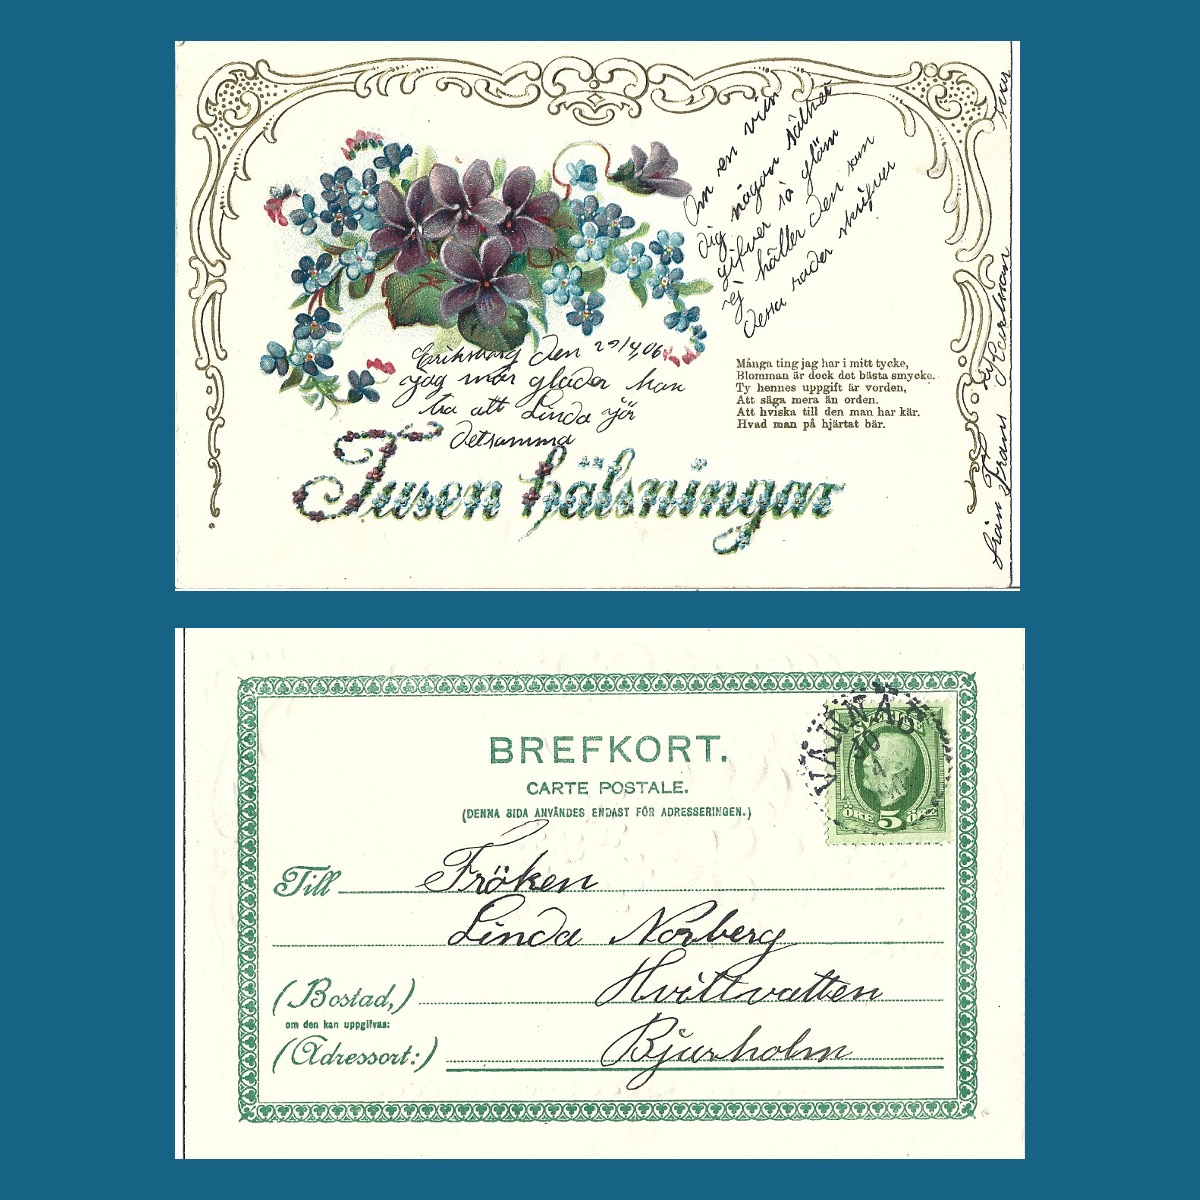 Om en vien
dig någon sälner
gifver så glöm
ej håller den som
dessa rader skrifver
Eriksborg den 29/4 06
Jag mår glader kan
tro att Linda gör
detsamma
Många ting jag har i mitt tycke,
Blomman är dock det bästa smycke.
Ty hennes uppgift är vorden,
Att säga mera än orden.
Att hviska till den man har kär.
Hvad man på hjärtat bär.
Tusen hälsningar
från Frans Karlsson svar
BREFKORT.
CARTE POSTALE.
(DENNA SIDA ANVÄNDES ENDAST FÖR ADRESSERINGEN.)
VÄNNÄS
30
4
ÖRE 5 ÖRE
Till Fröken
Linda Norberg
(Bostad,) Hvittvatten
om den kan uppgifvas:
(Adressort:) Bjurholm